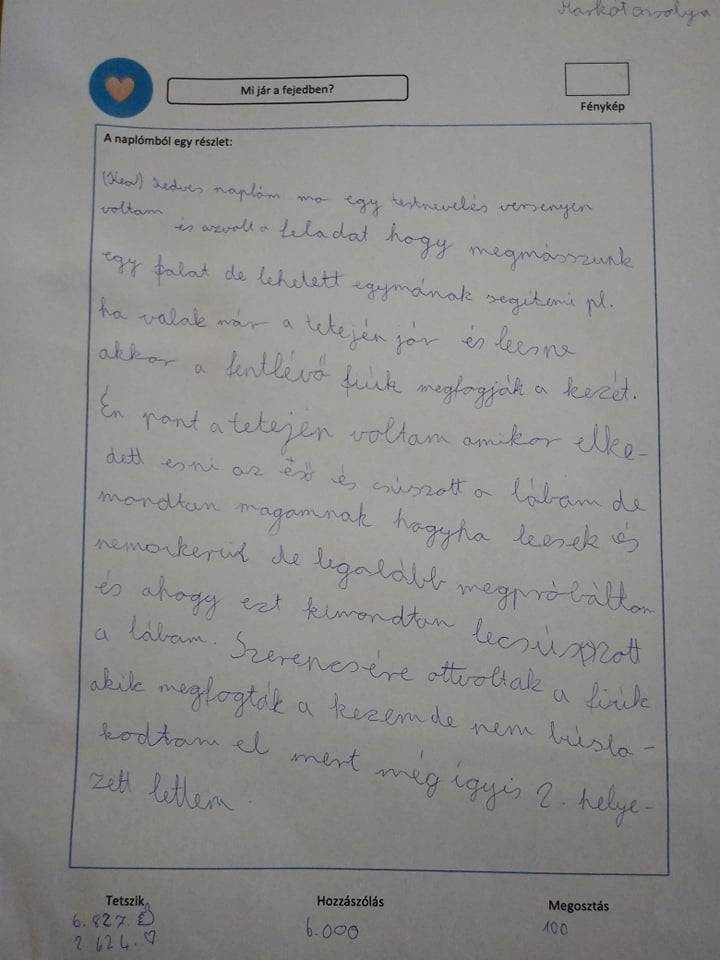 Markot Orsolya
Mi jár a fejedben?
Fénykép
A naplómból egy részlet:
Kedves naplóm ma egy testnevelés versenyen
voltam és azvolt a feladat hogy megmásszunk
egy falat de lehetett egymának segíteni pl.
ha valak már a tetején jár és leesne
akkor a fentlévő fiúk megfogják a kezét.
Én pont a tetején voltam amikor elke-
dett esni az eső és csúszott a lábam de
mondtam magamnak hogyha leesek és
nemsikerül de legalább megpróbáltam
és ahogy ezt kimondtam lecsúszott
a lábam. Szerencsére ottvoltak a fiúk
akik megfogták a kezem de nem búsla-
kodtam el mert még ígyis 2. helye-
zett lettem.
Tetszik Hozzászólás Megosztás
6.827. 6.000 100
2.624.